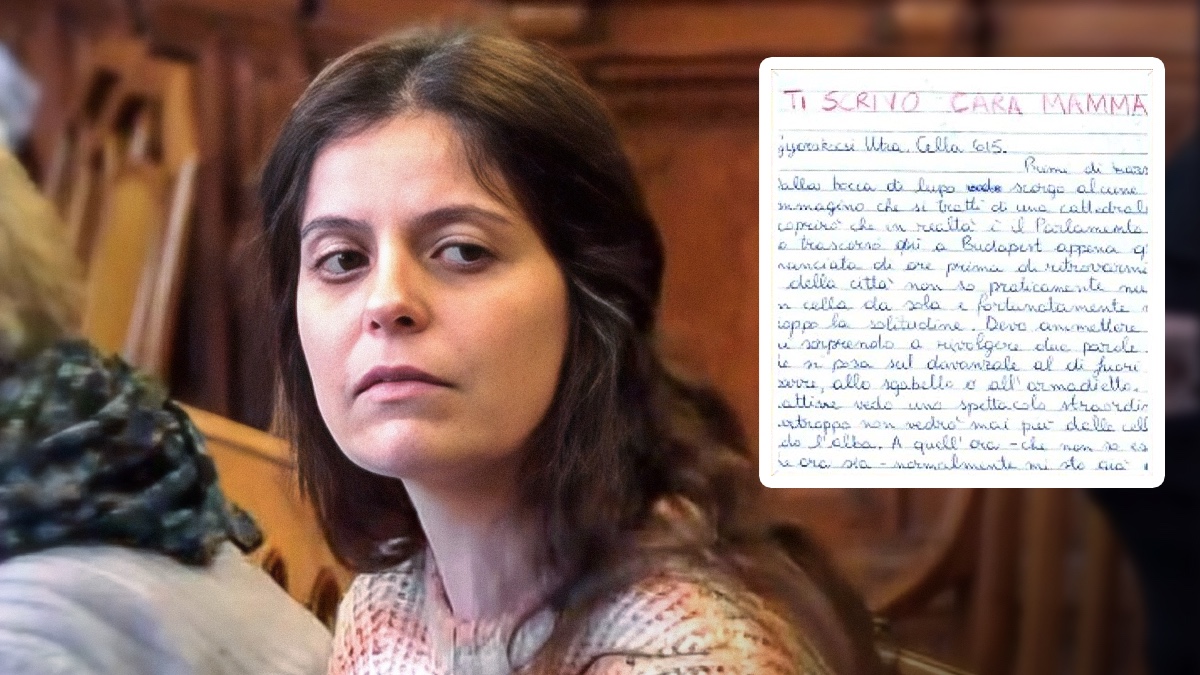 TI SCRIVO CARA MAMMA
Utca, Cella 615.
Primi di marz
dalla bocca di lupo scorgo alcune
mmagino che si tratti di una cattedrale
coprirò che in realtà è il Parlamento
o trascorso qui a Budapest appena q
manciata di ore prima di ritrovarmi
della città non so praticamente nu
n cella da sola e fortunatamente
oppo la solitudine. Devo ammettere
sorprendo a rivolgere due parole
e si posa sul davanzale al di fuori
barre, allo sgabello o all'armadietto.
attine vedo uno spettacolo straordin
urtroppo non vedrò mai più dalle cell
do l'alba. A quell'ora - che non so es
e ora sia - normalmente mi sto già